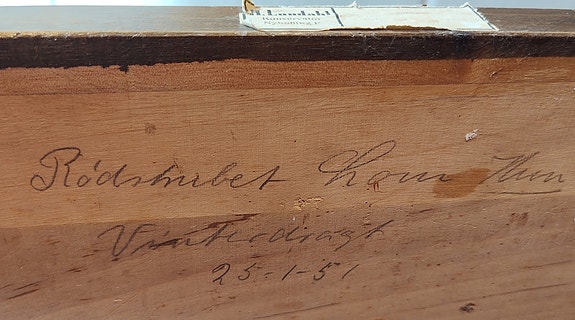 Landahl
Konservator
Nykøbing F.
Rødstrubet Lom Hun
Vinterdragt
25-1-51